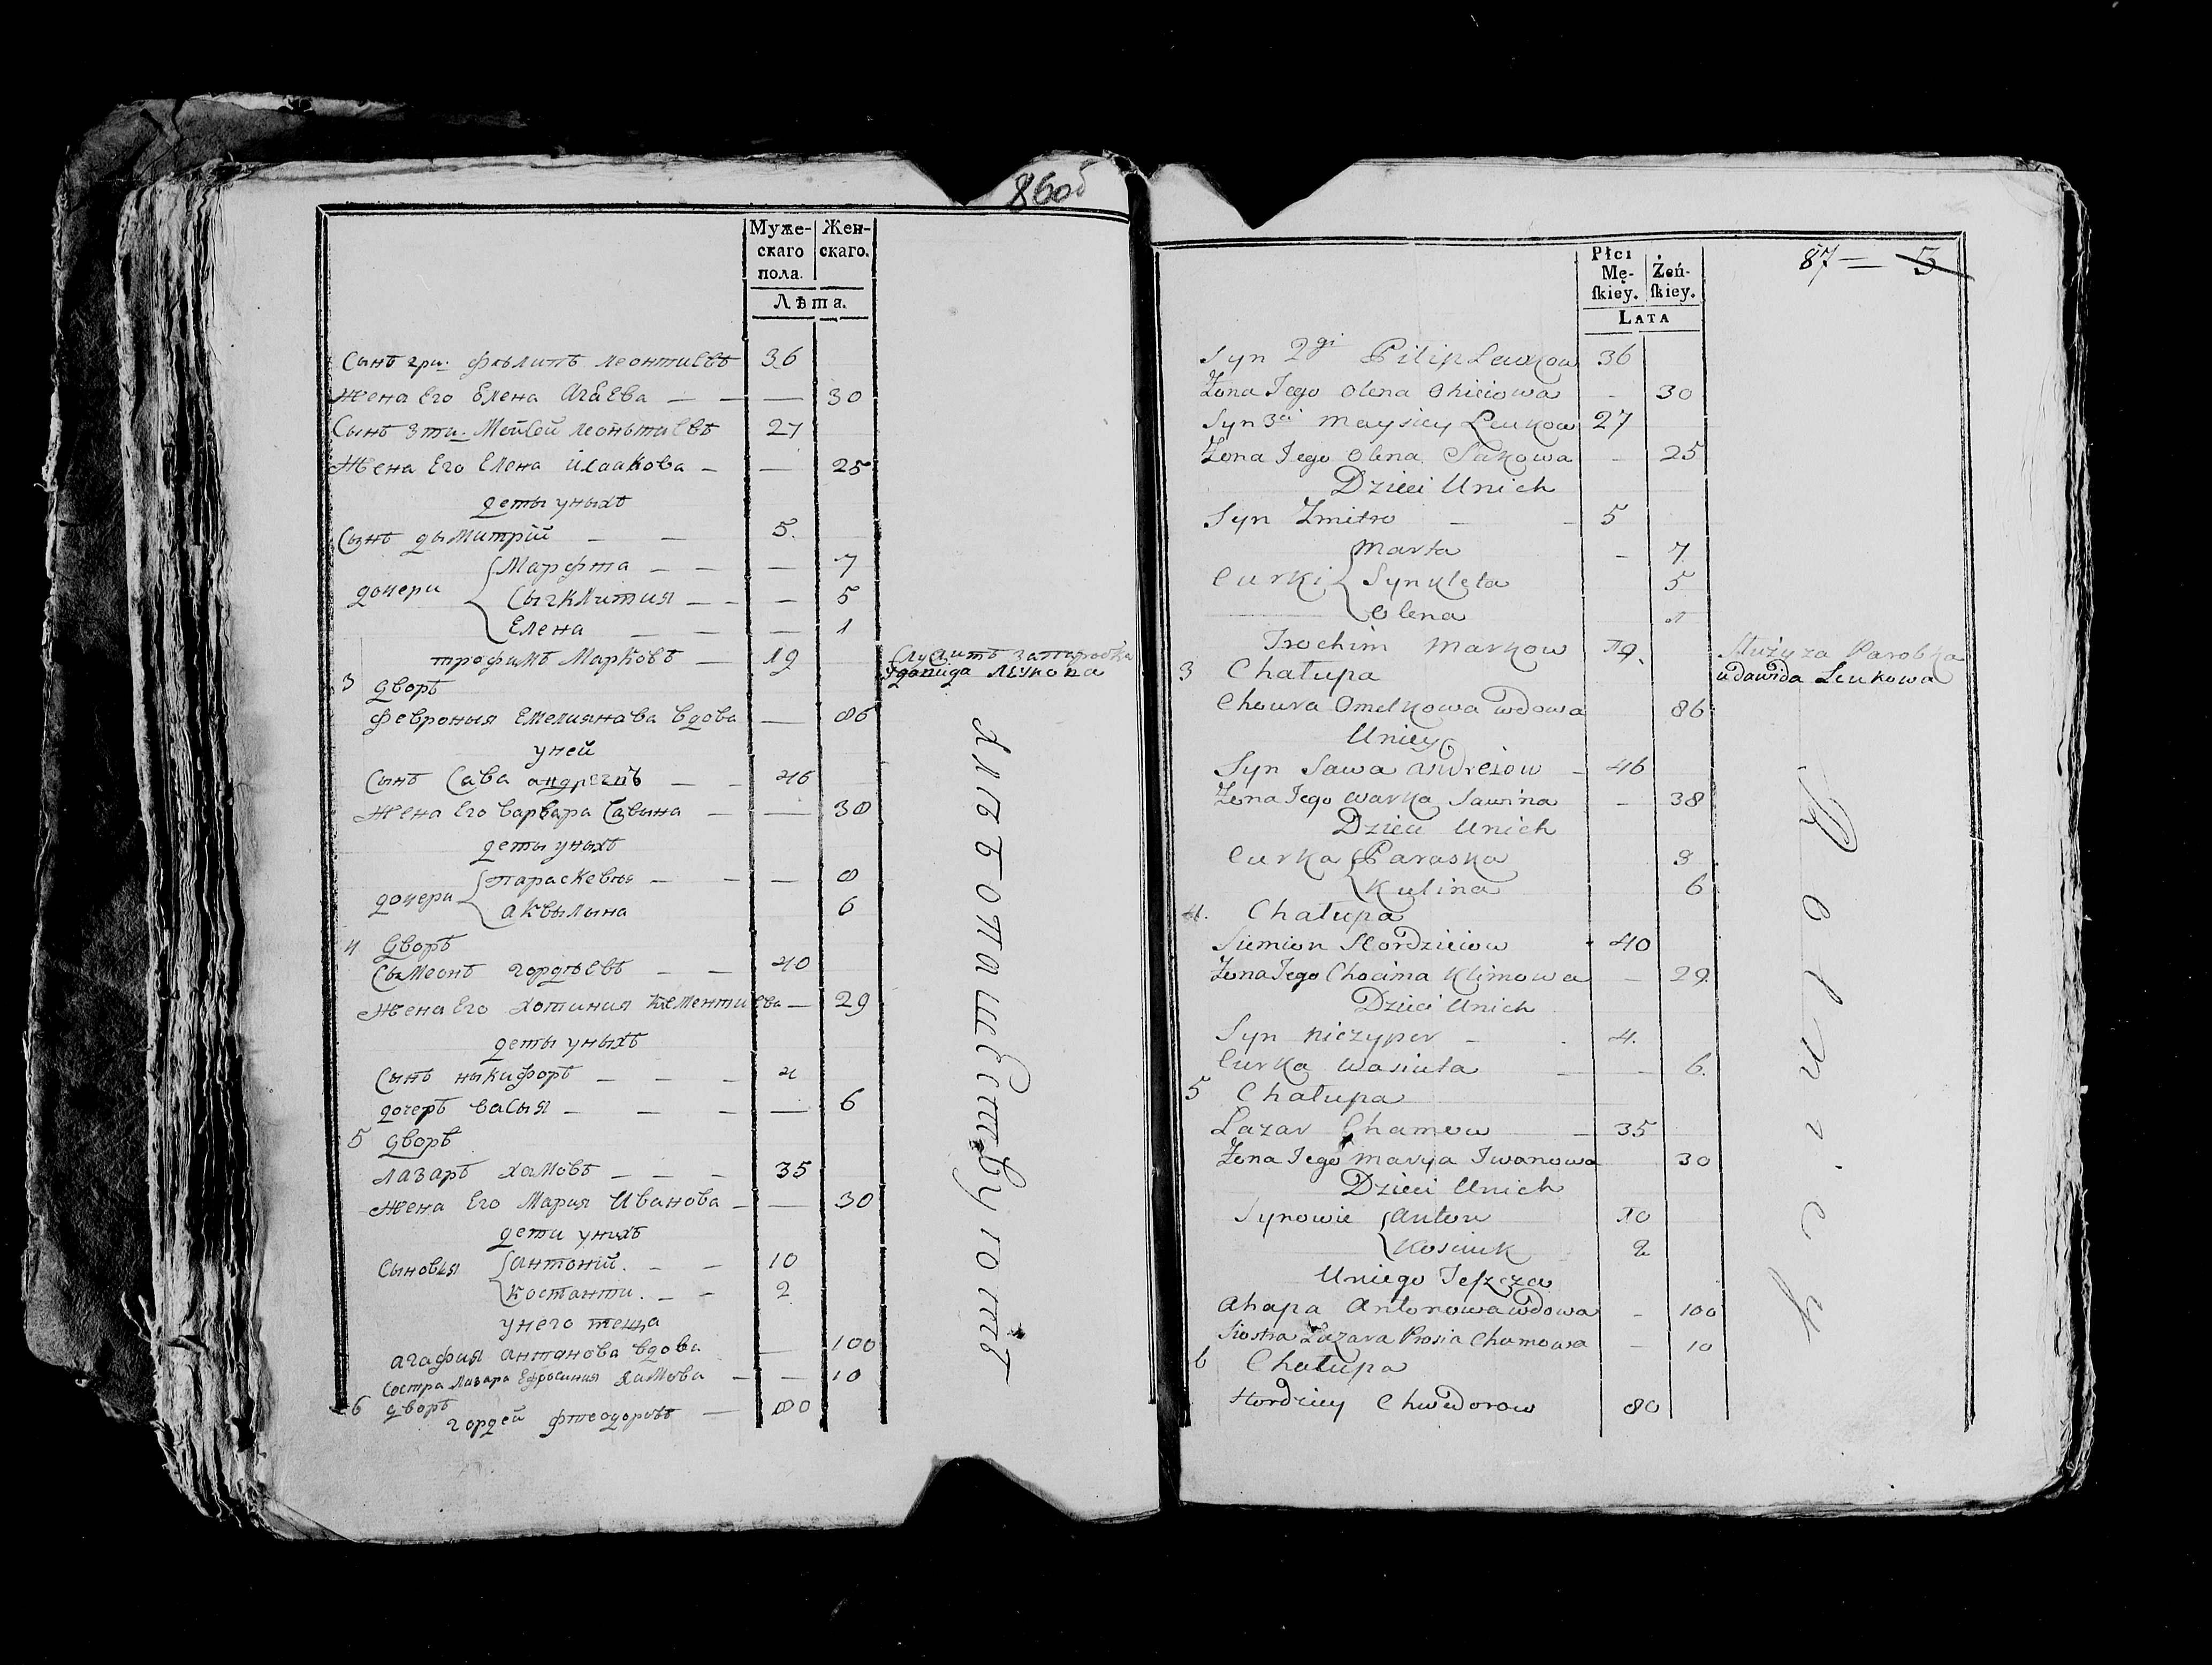 86об
Муже- Жен-
скаго скаго.
пола.
Лѣта.
Сынъ гри. Филипъ Леонтиевъ 36
Жена Его Елена — — — 30
Сынъ 3ти. Мойсей Леонътиевъ 27
Жена Его Елена Исаакова — — 25
деты уныхъ
Сынъ дымитрій — — 5.
Марфта — — — 7
дочери Сыгклития — — — 5
Елена — — — 1
трофимъ Марковъ — 19 Служитъ запаробка
удавида Лѣукова
3 дворъ
феврония Емелиянова вдова — 86
уней
Сынъ Сава андреевъ — — 46
Жена Его Варвара Савына — — 38
деты уныхъ
дочери параскевия — — — 8
аквылына 6
4 дворъ
Сымеонъ гордѣевъ — — 40
Жена Его хотиния Клементиева — 29
деты уныхъ
Сынъ ныкифоръ — — — 4
дочеръ васыя — — — — 6
5 дворъ
лазаръ хамовъ — — — 35
жена Его Мария Иванова — — 30
дети унихъ
Сыновья антоній. — — 10
Костанти. — — 2
унего теща
агафия антонова вдова — 100
Состра Лазара Ефросиния хамова — — 10
6 дворъ
гордей фтеодоровъ — 80
хлѣбопашествуютъ
87 — 5
Płci
Mę- Żeń-
ſkiey. ſkiey.
Lata
Syn 2gi Pilip Leukow 36
Żona Jego Olena - 30
Syn 3ci Maysiey Leukow 27
Żona Jego Olena Sakowa - 25
Dzieci Unich
Syn Zmitro - - 5
Marta - 7
Curki Synkleta 5
Olena 1
Trochim Markow 19. Służy za Parobka
u dawida Leukowa
3 Chałupa
Chowra Omelkowa wdowa 86
Uniey
Syn Sawa Andreiow - 46
Żona Jego Warka Sawina - 38
Dzieci Unich
Curka Paraska 8
Kulina 6
4. Chałupa
Siemion Hordzieiow 40
Żona Jego Chocima Klimowa - 29.
Dzieci Unich
Syn Niczyper - 4.
Curka Wasiuta - 6.
5 Chałupa
Łazar Chamow - 35
Żona Jego Marya Iwanowa 30
Dzieci Unich
Synowie Anton 10
Kosciuk 2
Uniego Jeſzcza
Ahapa Antonowa wdowa - 100
Siostra Łazara Prosia Chamowa - 10
6 Chałupa
Hordziey Chwedorow 80
Rolnicy